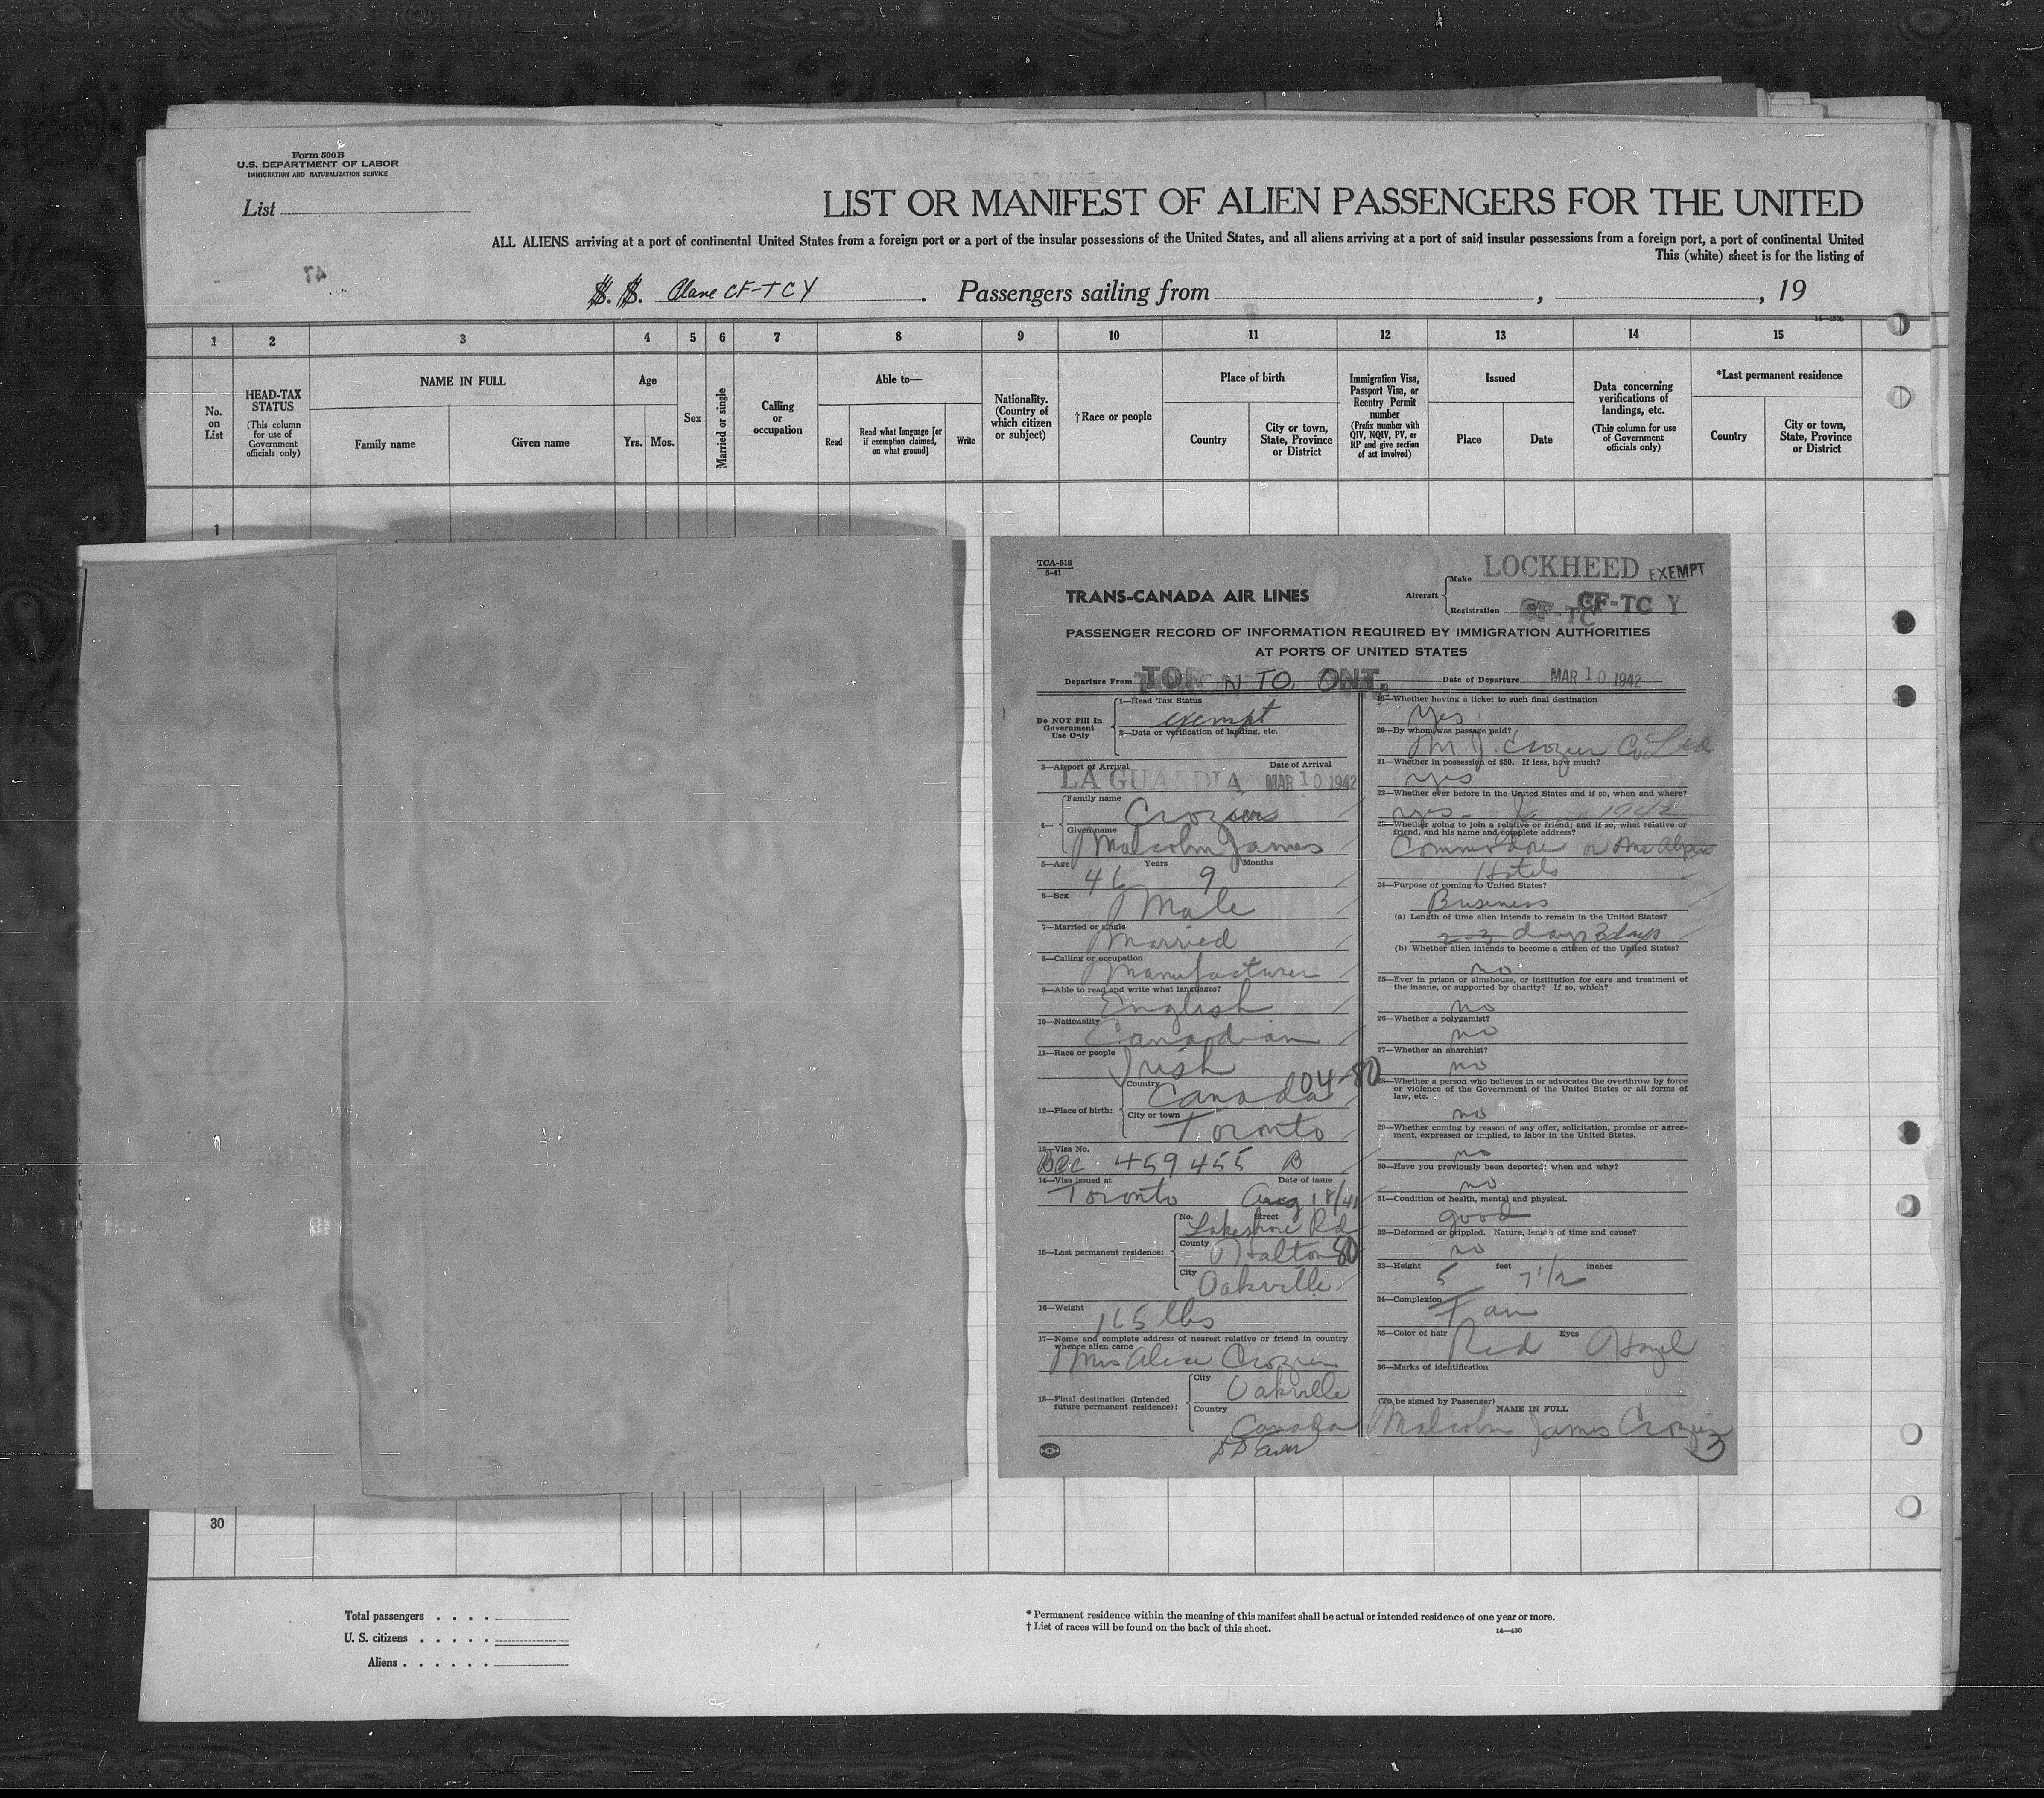 Form 500 B
U.S. DEPARTMENT OF LABOR
IMMIGRATION AND NATURALIZATION SERVICE
List
LIST OR MANIFEST OF ALIEN PASSENGERS FOR THE UNITED
ALL ALIENS arriving at a port of continental United States from a foreign port or a port of the insular possessions of the United States, and all aliens arriving at a port of said insular possessions from a foreign port, a port of continental United
This (white) sheet is for the listing of
47
S. S. Plane CF-TCY. Passengers sailing from , , 19
1 2 3 4 5 6 7 8 9 10 11 12 13 14 15
No. on List
HEAD-TAX STATUS
(This column for use of Government officials only)
NAME IN FULL
Family name
Given name
Age
Yrs. Mos.
Sex
Married or single
Calling or occupation
Able to—
Read
Read what language [or if exemption claimed, on what ground]
Write
Nationality. (Country of which citizen or subject)
†Race or people
Place of birth
Country
City or town, State, Province or District
Immigration Visa, Passport Visa, or Reentry Permit number
(Prefix number with QIV, NQIV, PV, or RP and give section of act involved)
Issued
Place
Date
Data concerning verifications of landings, etc.
(This column for use of Government officials only)
*Last permanent residence
Country
City or town, State, Province or District
1
TCA-518
5-41
TRANS-CANADA AIR LINES
Aircraft
Make LOCKHEED EXEMPT
Registration CF-TC CF-TC Y
PASSENGER RECORD OF INFORMATION REQUIRED BY IMMIGRATION AUTHORITIES
AT PORTS OF UNITED STATES
Departure From TORONTO, ONT. Date of Departure MAR 10 1942
Do NOT Fill In Government Use Only
1—Head Tax Status
exempt
2—Data or verification of landing, etc.
3—Airport of Arrival Date of Arrival
LA GUARDIA MAR 10 1942
4—
Family name
Crozier
Given name
Malcolm James
5—Age Years Months
46 9
6—Sex
Male
7—Married or single
Married
8—Calling or occupation
Manufacturer
9—Able to read and write what languages?
English
10—Nationality
Canadian
11—Race or people
Irish
04-80
12—Place of birth:
Country
Canada
City or town
Toronto
13—Visa No.
BCC 459455 B
14—Visa issued at Date of issue
Toronto Aug 18/41
15—Last permanent residence:
No. Street
Lakeshore Rd
County
Halton 80
City
Oakville
16—Weight
165 lbs
17—Name and complete address of nearest relative or friend in country whence alien came
Mrs Alice Crozier
18—Final destination (Intended future permanent residence):
City
Oakville
Country
Canada
19—Whether having a ticket to such final destination
Yes
20—By whom was passage paid?
M. J. Crozier Co Ltd
21—Whether in possession of $50. If less, how much?
yes
22—Whether ever before in the United States and if so, when and where?
yes - Jan 1942
23—Whether going to join a relative or friend; and if so, what relative or friend, and his name and complete address?
Commodore or McAlpin
Hotels
24—Purpose of coming to United States?
Business
(a) Length of time alien intends to remain in the United States?
2-3 days 3 days
(b) Whether alien intends to become a citizen of the United States?
no
25—Ever in prison or almshouse, or institution for care and treatment of the insane, or supported by charity? If so, which?
no
26—Whether a polygamist?
no
27—Whether an anarchist?
no
28—Whether a person who believes in or advocates the overthrow by force or violence of the Government of the United States or all forms of law, etc.
no
29—Whether coming by reason of any offer, solicitation, promise or agreement, expressed or implied, to labor in the United States.
no
30—Have you previously been deported; when and why?
no
31—Condition of health, mental and physical.
good
32—Deformed or crippled. Nature, length of time and cause?
no
33—Height feet inches
5 7 1/2
34—Complexion
Fair
35—Color of hair Eyes
Red Hazel
36—Marks of identification
(To be signed by Passenger)
NAME IN FULL
Malcolm James Crozier
3
30
Total passengers
U. S. citizens
Aliens
* Permanent residence within the meaning of this manifest shall be actual or intended residence of one year or more.
† List of races will be found on the back of this sheet.
14—430